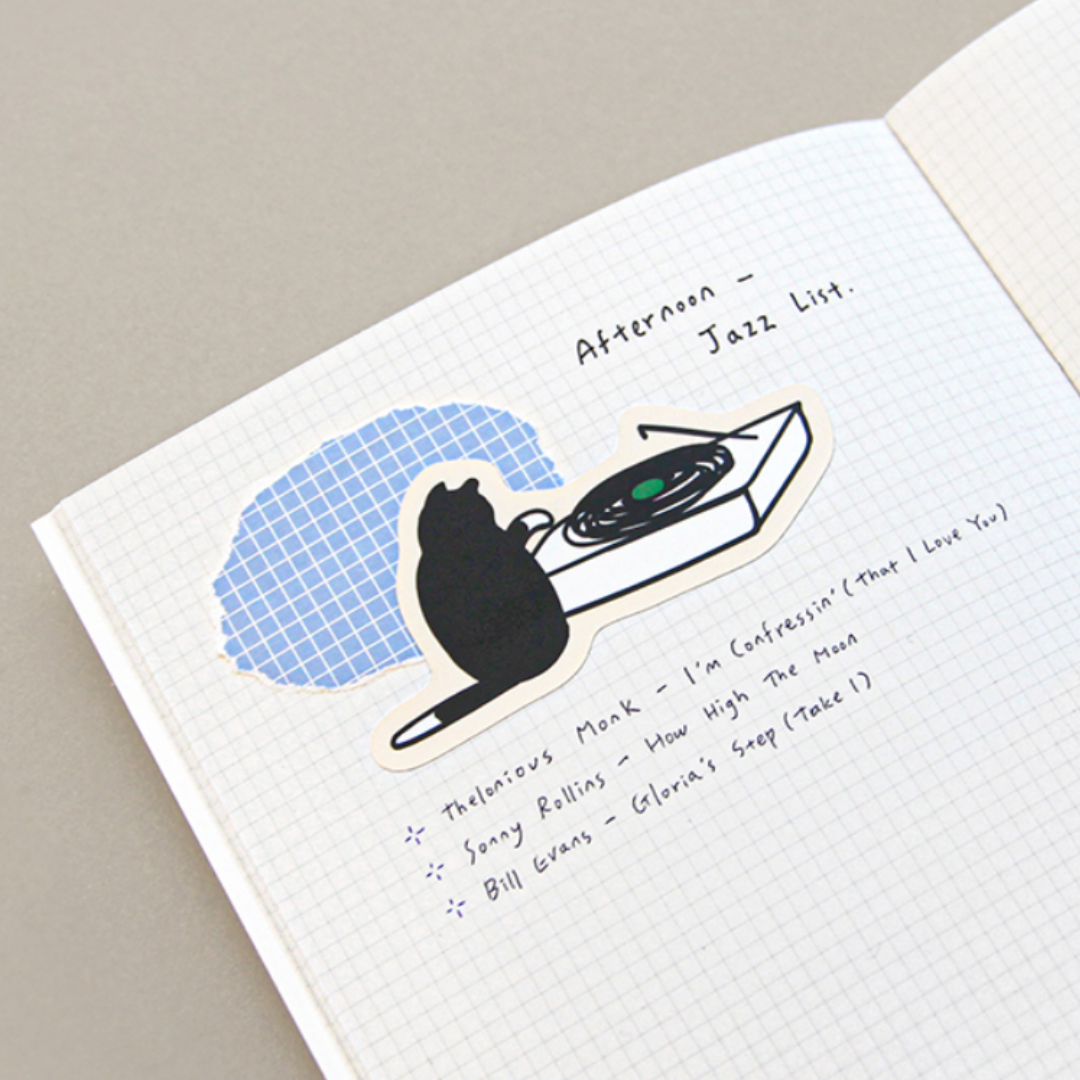 Afternoon -
Jazz List.
Thelonious Monk - I'm Confressin' (That I Love You)
Sonny Rollins - How High The Moon
Bill Evans - Gloria's Step (Take 1)